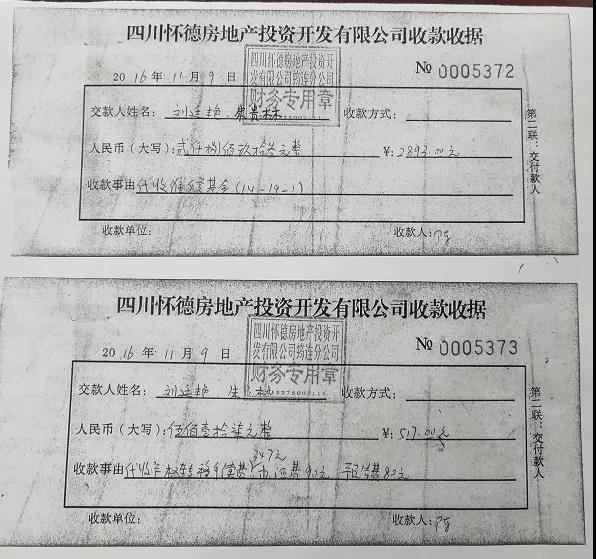 四川怀德房地产投资开发有限公司收款收据
四川怀德房地产投资开
发有限公司筠连分公司
财务专用章
2016年11月9日
№ 0005372
交款人姓名: 刘廷艳 朱贵林 收款方式:
人民币(大写): 贰仟捌佰玖拾叁元整 ¥: 2893.00元
收款事由 代收维修基金(14-19-1)
收款单位: 收款人:
第二联:交付款人
四川怀德房地产投资开发有限公司收款收据
四川怀德房地产投资开
发有限公司筠连分公司
财务专用章
5275002111
2016年11月9日
№ 0005373
交款人姓名: 刘廷艳 林 收款方式:
人民币(大写): 伍佰壹拾柒元整 ¥: 517.00元
347元
收款事由 代收产权转移手续费 办证费90元 费80元
收款单位: 收款人:
第二联:交付款人